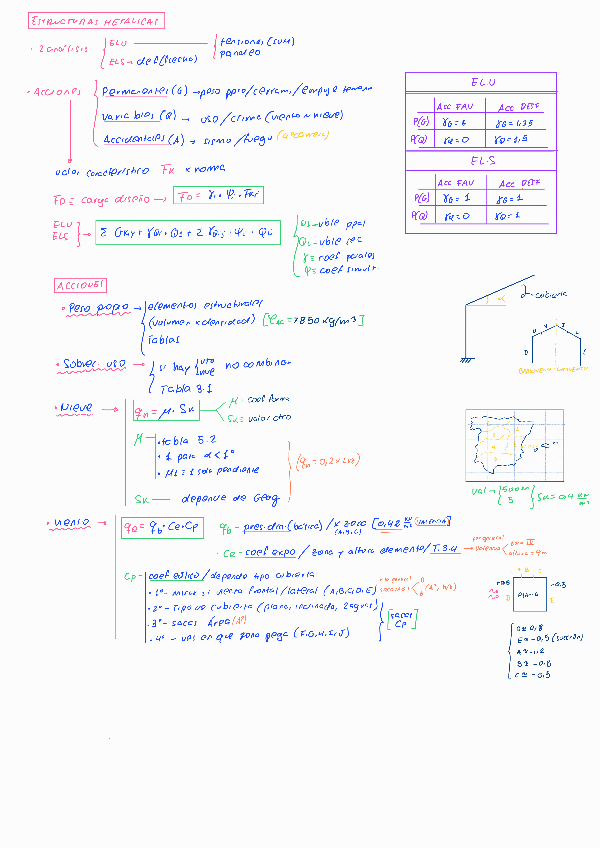 ESTRUCTURAS METALICAS
· 2 análisis
ELU
tensiones (sum)
pandeo
ELS → def (flecha)
· Acciones
Permanentes (G) → peso ppio/cerram./empuje terreno
Variables (Q) → uso/clima (viento ∧ nieve)
Accidentales (A) → sismo/fuego
valor característico Fk × norma
FD ≡ carga diseño → FD = γi · Ψi · Fki
ELU
ELS
Σ Gkj + γQi · Qi + Σ γQj · Ψi · Qi
Qi - vble ppal
Qi - vble sec
γ ≡ coef parciales
Ψ ≡ coef simult.
E.L.U
Acc FAV
Acc DESF
P(G)
γG = 1,35
P(Q)
γQ = 0
γQ = 1,5
E.L.S
Acc FAV
Acc DESF
P(G)
γG = 1
γG = 1
P(Q)
γQ = 0
γQ = 1
ACCIONES
· Peso propio
elementos estructurales
(volumen × densidad) [ρac = 7850 kg/m³]
Tablas
· Sobrec. uso
si hay uso
nieve
no combinar
Tabla 3.1
α
α - cubierta
· Nieve → qn = μ · Sk
μ - coef forma
Sk = valor ctro
μ
· tabla 5.2
· 1 para α < 1°
· μ1 = 1 solo pendiente
(qn = 0,2 × Luz)
Sk — depende de Geog
Val → 500 m
5
Sk = 0,4 kN/m²
· Viento → qe = qb · Ce · Cp
qb - pres. din. (básica) / × zona [0,42 kN/m² (VALENCIA)]
(A, B, C)
· Ce - coef expo / zona y altura elemento / T.3.4
por general
Valencia
zona IV
altura = 9m
Cp - coef eólico / depende tipo cubierta
· 1º - mirar si viento frontal/lateral (A, B, C, D, E)
· 2º - Tipo de cubierta (plana, inclinada, 2 aguas)
· 3º - sacas área (A²)
· 4º - ves en que zona pega (F, G, H, I, J)
[sacas Cp]
+0,8
-0,3
D
E
D ≡ 0,8
E ≡ -0,5 (succión)
A ≡ -1,2
B ≡ -0,8
C ≡ -0,5